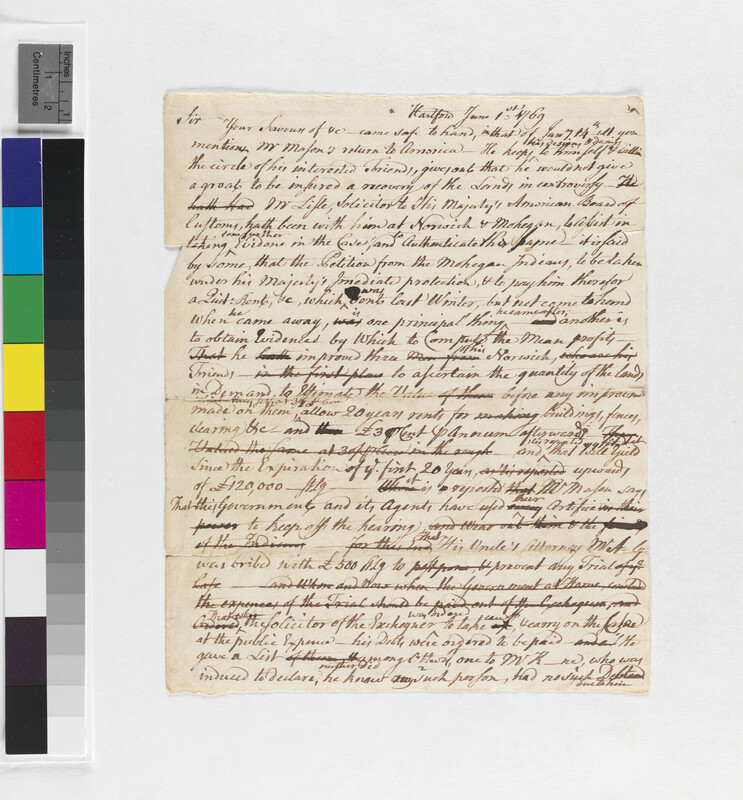 Inches
Centimetres
1
2
Hartford June 1st 1769
Sir
Your Favours of &c - came safe to hand, in that of Jany 14th ult. you
his designs &
mention Mr Mason's return to America - He keeps to himself & within
the circle of his interested Friends, gives out that he would not give
a groat to be insured a recovery of the Lands in controversy - He
hath had Mr Lisle, Solicitor to His Majesty's American Board of
Customs, hath been with him at Norwich & Mohegan, to assist in
taking some further Evidence in the Case, and to Authenticate the same - it is said
by some, that the Petition from the Mohegan Indians, to be taken
under his Majesty's Imediate protection, & to pay him therefor
a Quit-Rent, &c, which was sent last Winter, but not come to hand
when he came away, was is one principal thing he came after, and another is
to obtain Evidences by which to Compute the Mean profits -
That he hath improvd three Men from his Norwich, who are his
Friends - in the first place to ascertain the quantity of the lands
in Demand, to Estimate the Value of them before any improvemt
made on them, allow 20 years rents for making buildings, fences,
clearing &c - and then £3 pr Cent pr Annum afterwards
Valued the same at 3s pr acre in the and that will yield
Since the Expiration of ye first 20 Years, as is reported upwards
of £120,000 Stlg - It is reported that Mr Mason says
That this Government and its Agents have used every their Artifice in their
power to keep off the hearing, and wear out them & the
of the Indians - for this End That His Uncle's Attorney Mr
was bribed with £500 Stlg to postpone & prevent any Trial of ye
Case - and Whom and Now when the Government at Home,
the expences of the Trial should be paid out of the Exchequer, and
Ordered That the Solicitor of the Exchequer was ordered to take & carry on the Case
at the public Expence - his Debts were ordered to be paid - and He
gave a List of them among others, one to Mr K-ne, who was
induced to declare, he knew any such person, had no such Debt
due to him